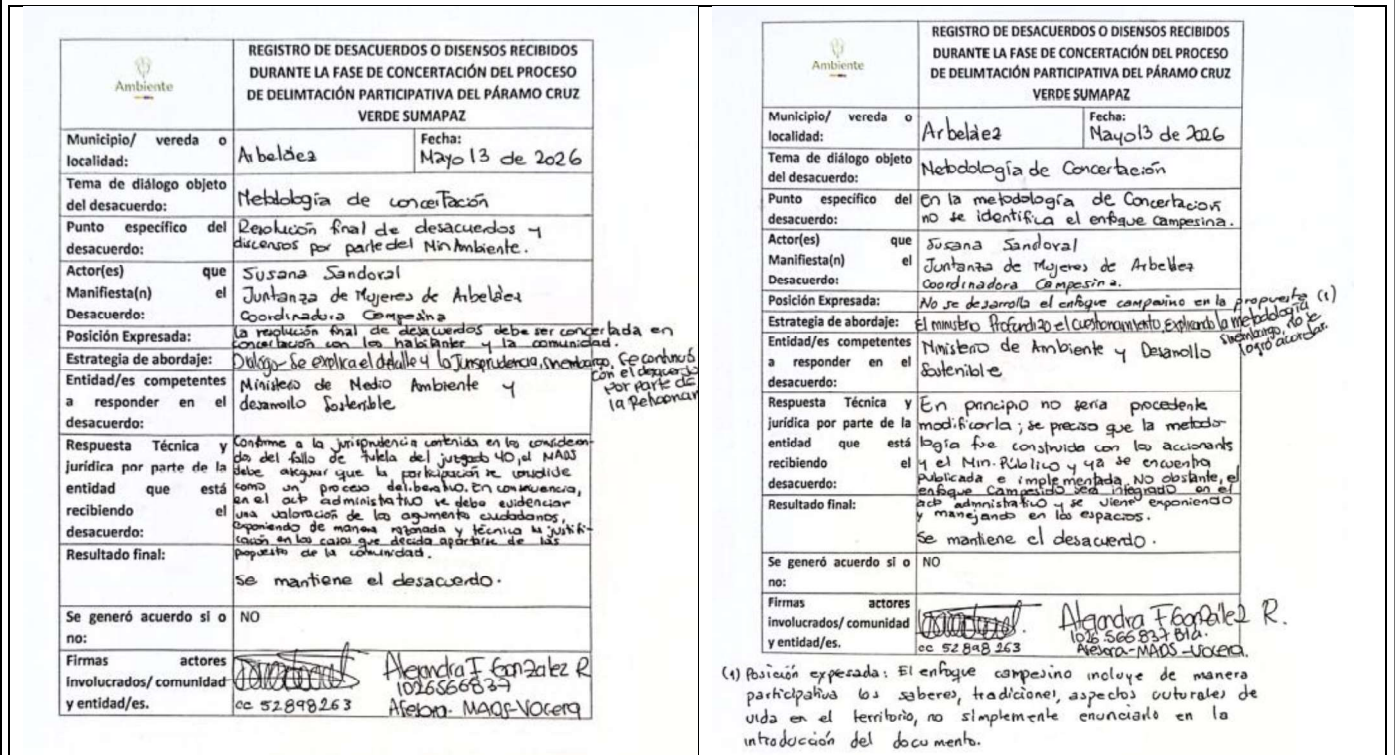 Ambiente
REGISTRO DE DESACUERDOS O DISENSOS RECIBIDOS
DURANTE LA FASE DE CONCERTACIÓN DEL PROCESO
DE DELIMTACIÓN PARTICIPATIVA DEL PÁRAMO CRUZ
VERDE SUMAPAZ
Municipio/ vereda o
localidad:
Arbeláez
Fecha:
Mayo 13 de 2026
Tema de diálogo objeto
del desacuerdo:
Metdología de concertación
Punto específico del
desacuerdo:
Resolución final de desacuerdos y
discensos por parte del MinAmbiente.
Actor(es) que
Manifiesta(n) el
Desacuerdo:
Susana Sandoval
Juntanza de Mujeres de Arbeláez
Coordinadora Campesina
Posición Expresada:
La resolución final de desacuerdos debe ser concertada en
concertación con los habitantes y la comunidad.
Estrategia de abordaje:
Dialógo- Se explica el detalle y la Jurisprudencia, sinembargo, se continuó
con el desacuerdo
por parte de
la
Entidad/es competentes
a responder en el
desacuerdo:
Ministerio de Medio Ambiente y
desarrollo Sostenible
Respuesta Técnica y
jurídica por parte de la
entidad que está
recibiendo el
desacuerdo:
Conforme a la jurisprudencia contenida en los consideran-
dos del fallo de tutela del juzgado 40, el MADS
debe asegurar que la participación se consolide
como un proceso deliberativo. En consecuencia,
en el acto administrativo se debe evidenciar
una valoración de los argumentos ciudadanos,
exponiendo de manera razonada y técnica la justifi-
cación en los casos que decida apartarse de las
propuesta de la comunidad.
Resultado final:
se mantiene el desacuerdo.
Se generó acuerdo si o
no:
NO
Firmas actores
involucrados/ comunidad
y entidad/es.
cc 52898263
Alejandra F González R
1026566837
Asesora- MADS-Vocera
Ambiente
REGISTRO DE DESACUERDOS O DISENSOS RECIBIDOS
DURANTE LA FASE DE CONCERTACIÓN DEL PROCESO
DE DELIMTACIÓN PARTICIPATIVA DEL PÁRAMO CRUZ
VERDE SUMAPAZ
Municipio/ vereda o
localidad:
Arbeláez
Fecha:
Mayo 13 de 2026
Tema de diálogo objeto
del desacuerdo:
Metodología de Concertación
Punto específico del
desacuerdo:
en la metodología de Concertación
no se identifica el enfoque campesina.
Actor(es) que
Manifiesta(n) el
Desacuerdo:
Susana Sandoval
Juntanza de Mujeres de Arbeláez
Coordinadora Campesina.
Posición Expresada:
No se desarrolla el enfoque campesino en la propuesta (1)
Estrategia de abordaje:
El ministerio Profundizo el cuestionamiento, Explicando la metodología
sinembargo, no se
logró acuerdo.
Entidad/es competentes
a responder en el
desacuerdo:
Ministerio de Ambiente y Desarrollo
Sostenible
Respuesta Técnica y
jurídica por parte de la
entidad que está
recibiendo el
desacuerdo:
En principio no sería procedente
modificarla; se preciso que la metodo-
logía fue construida con los accionants
y el Min. Público y ya se encuentra
Publicada e implementada. NO obstante, el
enfoque Campesido será integrado en el
acto admnistrativo y se viene exponiendo
y manejando en los espacios.
Resultado final:
Se mantiene el desacuerdo.
Se generó acuerdo si o
no:
NO
Firmas actores
involucrados/ comunidad
y entidad/es.
cc 52898263
Alejandra F González R.
1026566837 Bta.
Asesora-MADS-Vocera.
(1) Posición expesada: El enfoque campesino incluye de manera
participativa los saberes, tradiciones, aspectos cuturales de
vida en el territorio, no simplemente enunciarlo en la
introducción del documento.